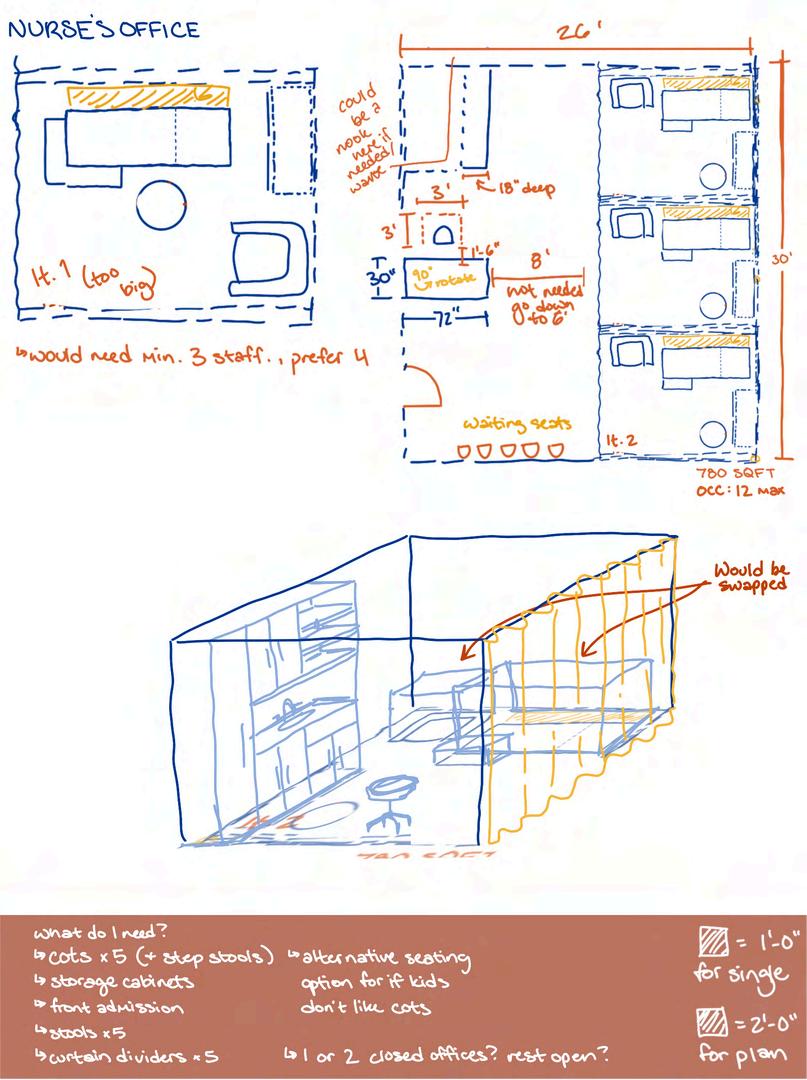 NURSE'S OFFICE
It. 1 (too
big)
↳would need min. 3 staff., prefer 4
26'
could
be a
nook
here if
needed/
waste
18" deep
3'
3'
1'-6"
30"
90°
rotate
8'
not needed
go down
to 6'
72"
30'
waiting seats
It. 2
780 SQFT
OCC: 12 max
Would be
swapped
It. 2
780 SQFT
what do I need?
↳cots x5 (+ step stools)
↳storage cabinets
↳front admission
↳stools x5
↳curtain dividers x5
↳alternative seating
option for if kids
don't like cots
↳1 or 2 closed offices? rest open?
= 1'-0"
for singe
= 2'-0"
for plan